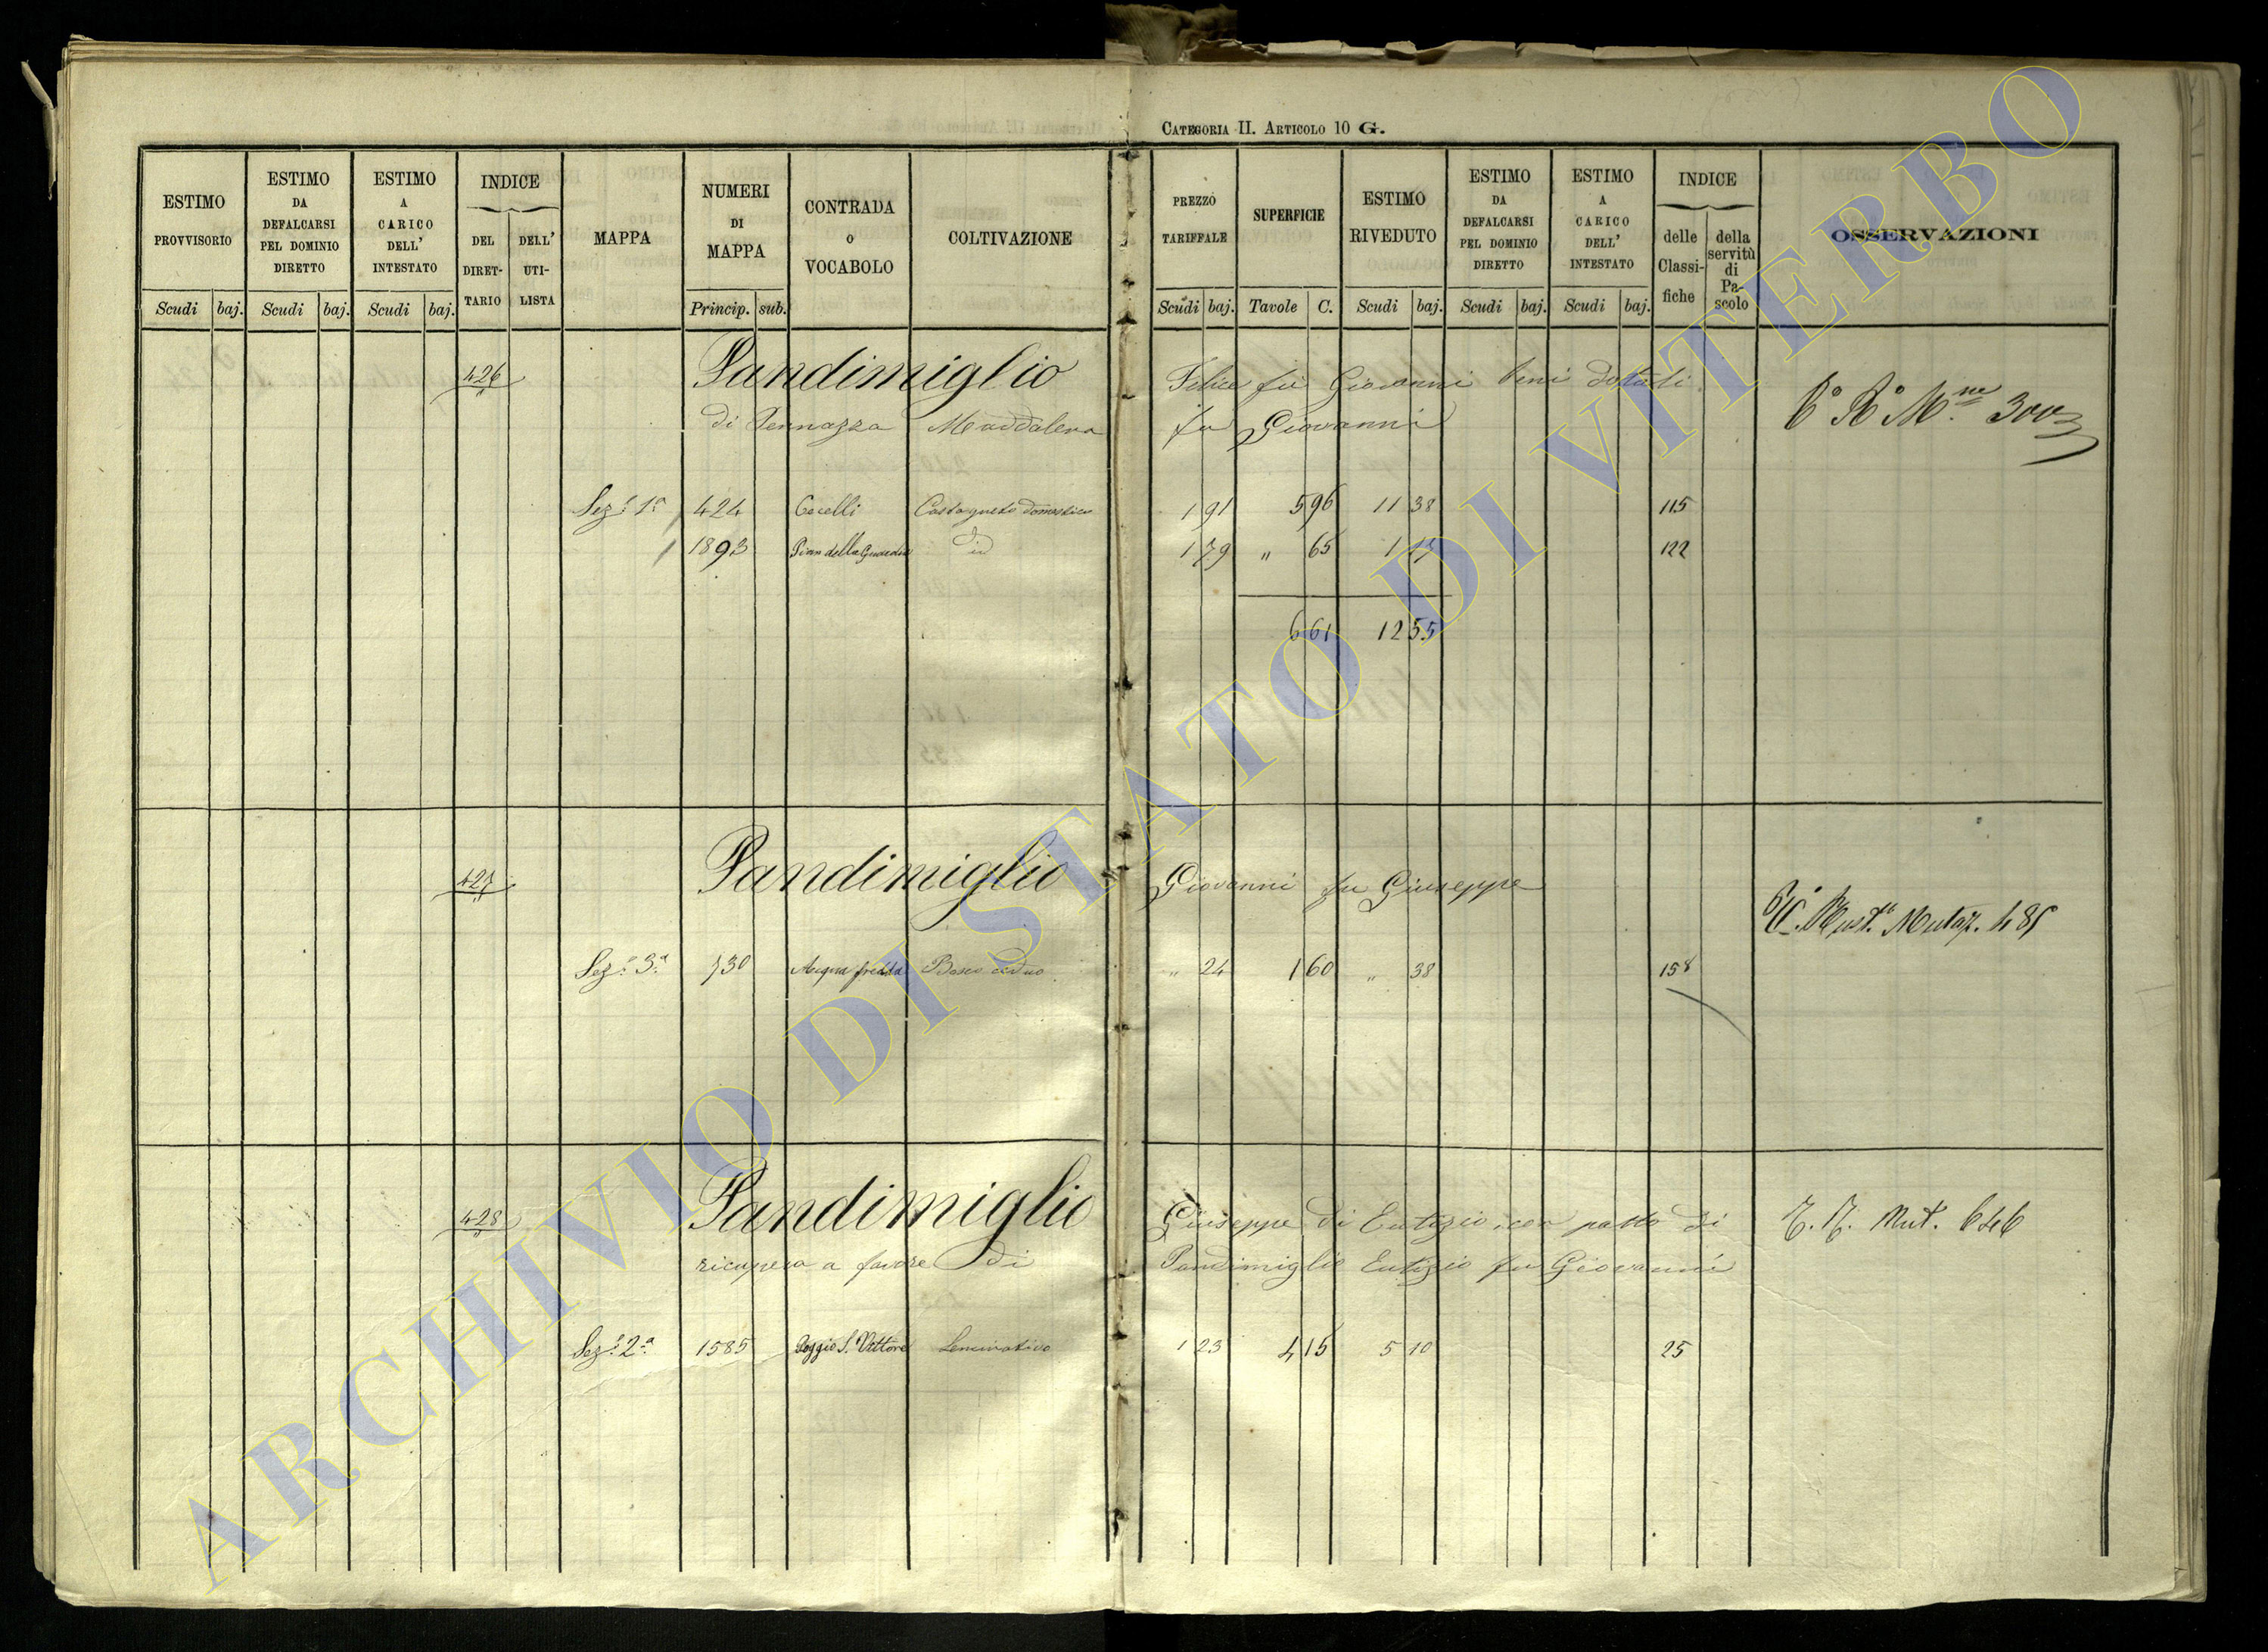 CATEGORIA II. ARTICOLO 10 G.
ESTIMO PROVVISORIO Scudi baj.
ESTIMO DA DEFALCARSI PEL DOMINIO DIRETTO Scudi baj.
ESTIMO A CARICO DELL' INTESTATO Scudi baj.
INDICE DEL DIRET-TARIO DELL' UTI-LISTA
MAPPA
NUMERI DI MAPPA Princip. sub.
CONTRADA O VOCABOLO
COLTIVAZIONE
PREZZO TARIFFALE Scudi baj.
SUPERFICIE Tavole C.
ESTIMO RIVEDUTO Scudi baj.
ESTIMO DA DEFALCARSI PEL DOMINIO DIRETTO Scudi baj.
ESTIMO A CARICO DELL' INTESTATO Scudi baj.
INDICE delle Classi-fiche della servitù di Pa-scolo
OSSERVAZIONI
426 Pandimiglio Felice fu Giovanni beni dotali
di Pennazza Maddalena fu Giovanni
300
Sez.e 1a 424 Cecelli Castagneto domestico 1 91 5 96 11 38 115
1893 Pian della Guardia id 1 79 " 65 1 17 122
6 61 12 55
427 Pandimiglio Giovanni fu Giuseppe
Rust. Mutaz. 485
Sez.e 3a 730 Acqua fredda Bosco ceduo " 24 1 60 " 38 158
428 Pandimiglio Giuseppe di Eutizio, con patto di
Mut. 646
ricupera a favore di Pandimiglio Eutizio fu Giovanni
Sez.e 2a 1585 Poggio S. Vittore Seminativo 1 23 4 15 5 10 25
ARCHIVIO DI STATO DI VITERBO